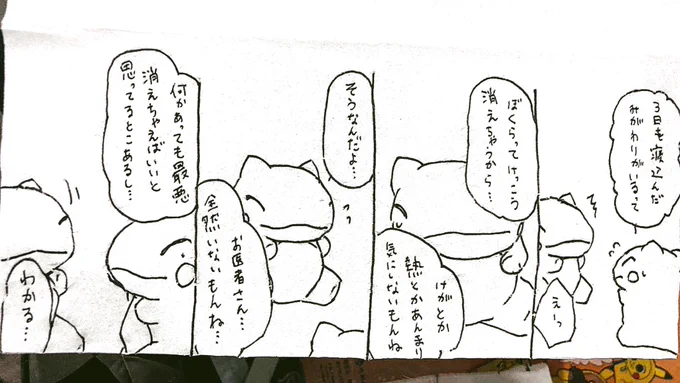 3日も寝込んだ
みがわりがいるって
えーっ
ぼくらってけっこう
消えちゃうから…
けがとか
熱とかあんまり
気にしないもんね
そうなんだよ…
お医者さん…
全然いないもんね…
何かあっても最悪
消えちゃえばいいと
思ってるとこあるし…
わかる…